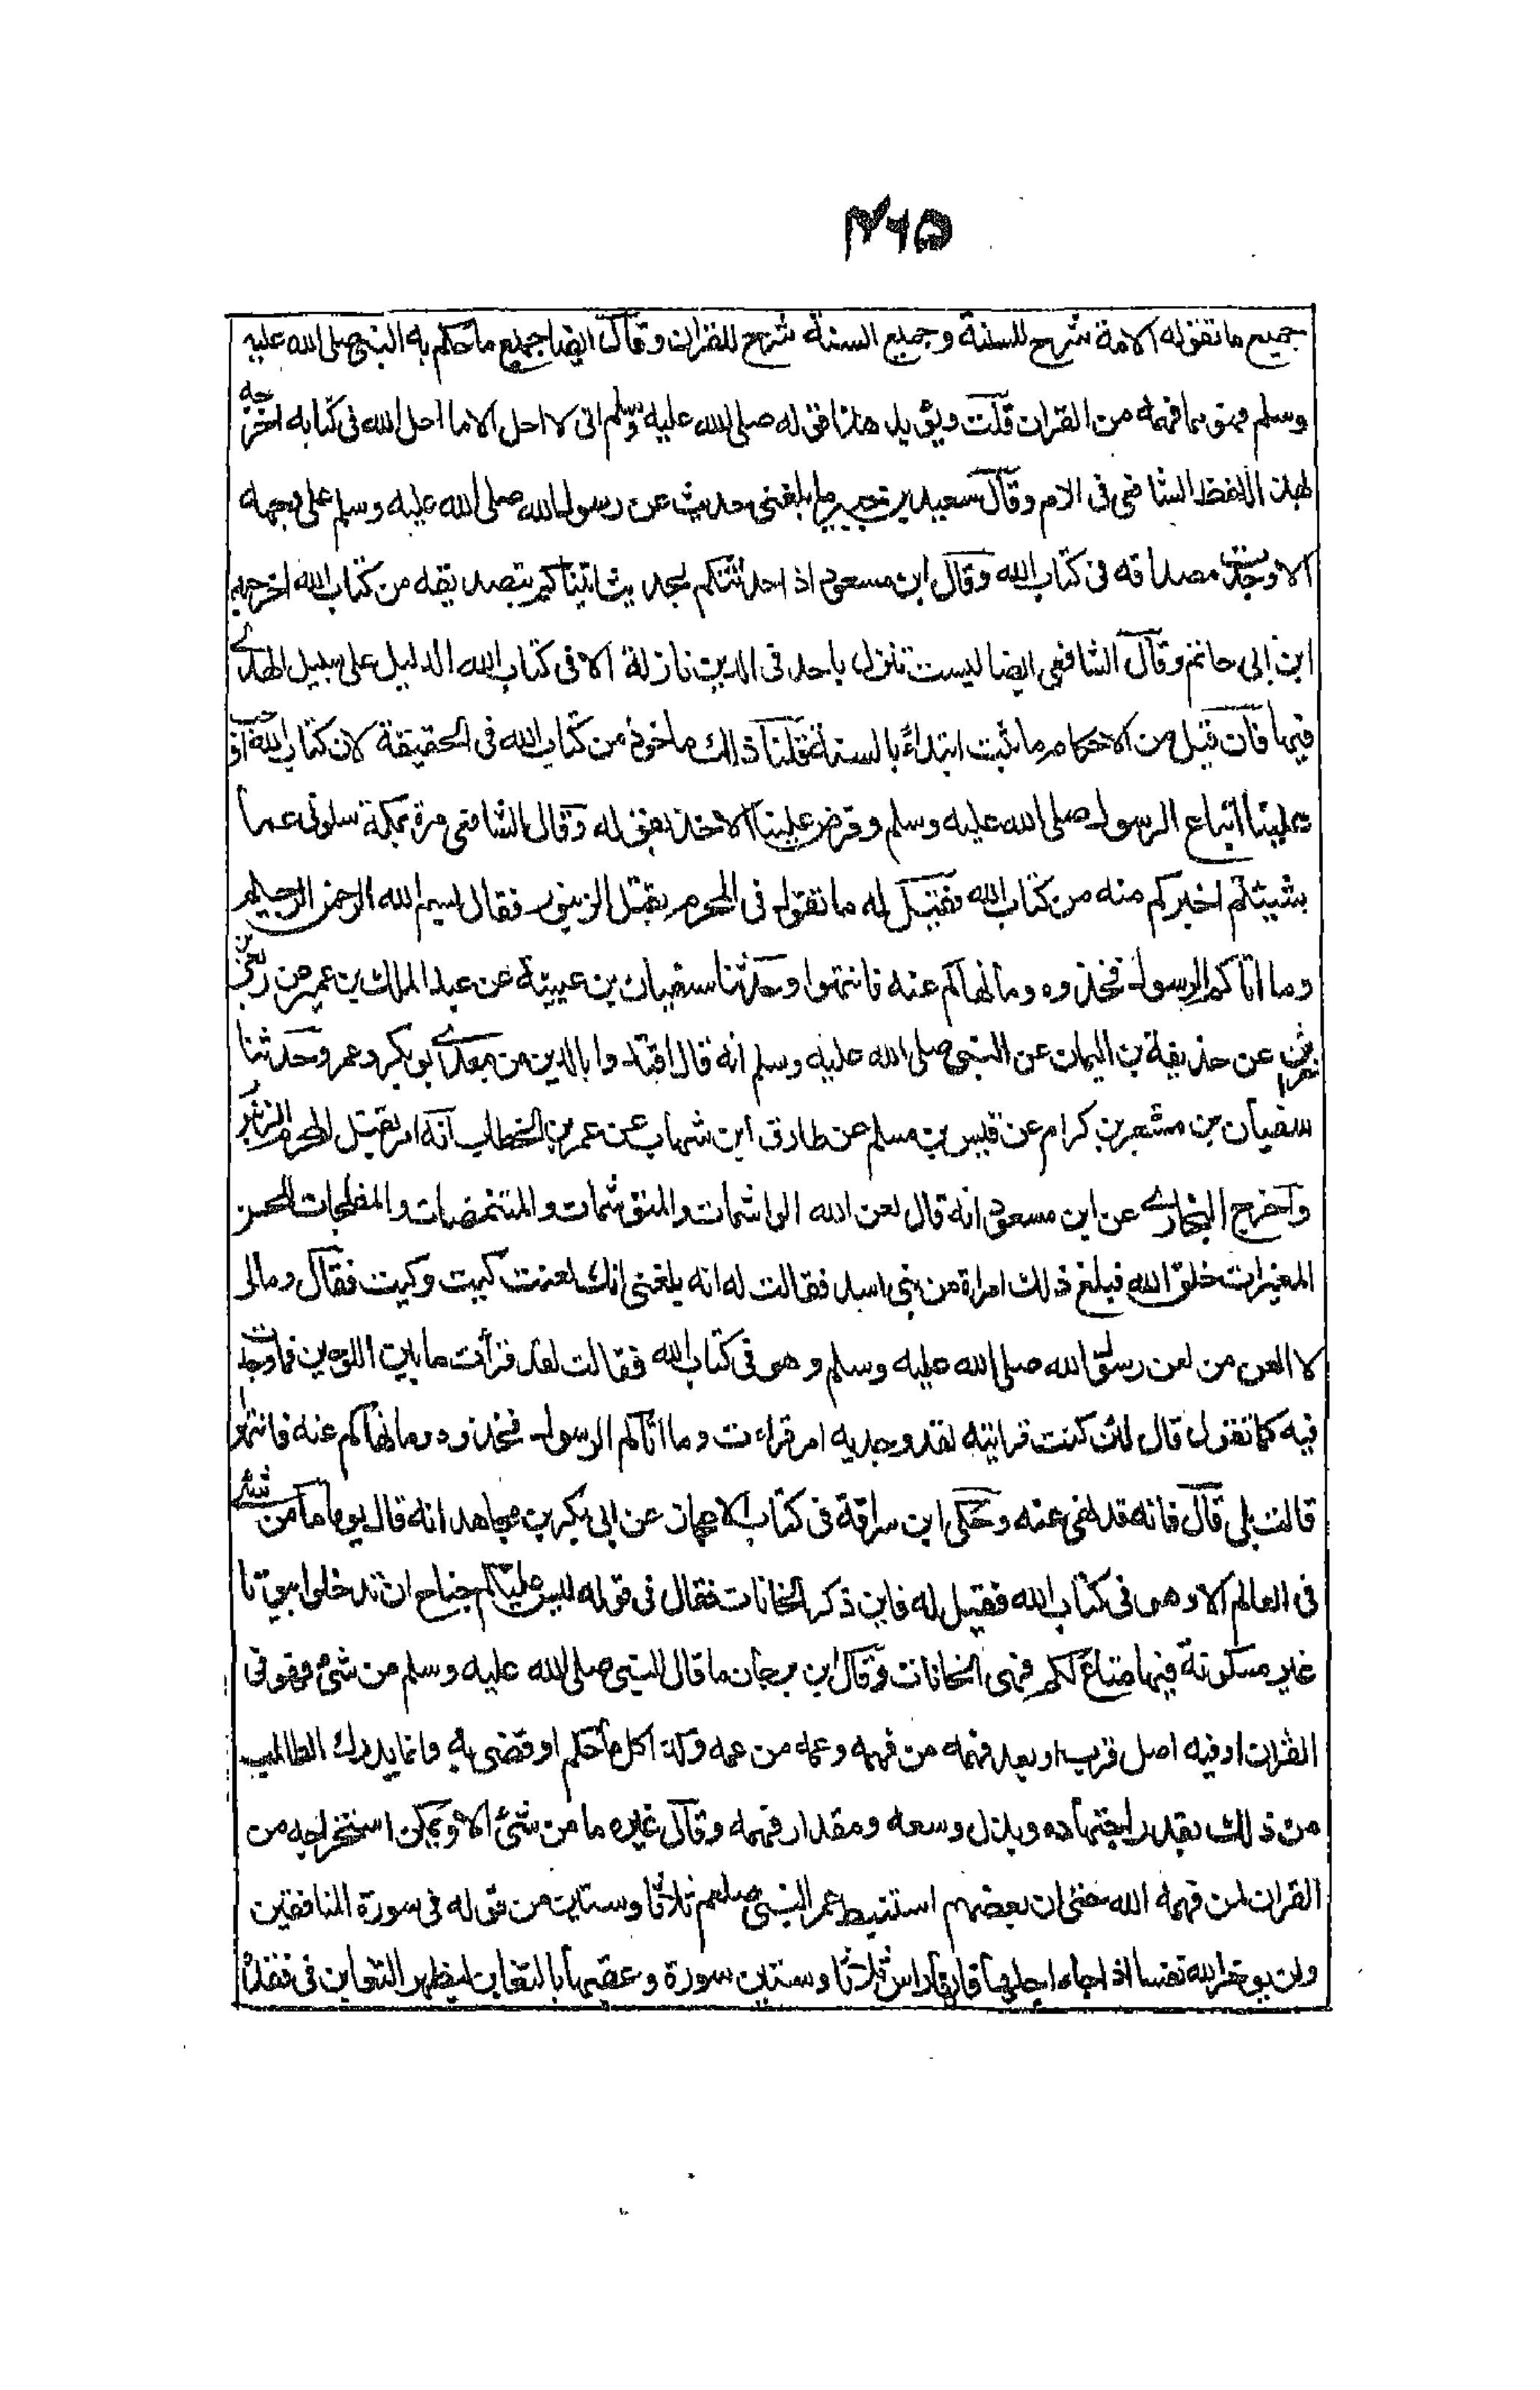 ٢٦٥
جميع ما تقوله الامة شرح للسنة وجميع السنة شرح للقران وقال ايضا جميع ما حكم به النبي صلى الله عليه
وسلم فهو مما فهمه من القران قلت ويؤيد هذا قوله صلى الله عليه وسلم انى لا احل الا ما احل الله فى كتابه اخرجه
بهذا اللفظ الشافعى فى الام وقال سعيد بن جبير ما بلغنى حديث عن رسول الله صلى الله عليه وسلم على وجهه
الا وجدت مصداقه فى كتاب الله وقال ابن مسعود اذا حدثتكم بحديث انبأتكم بتصديقه من كتاب الله اخرجهم
ابن ابى حاتم وقال الشافعى ايضا ليست تنزل باحد فى الدين نازلة الا فى كتاب الله الدليل على سبيل الهدى
فيها فان قيل من الاحكام ما ثبت ابتداءً بالسنة قلنا ذلك ماخوذ من كتاب الله فى الحقيقة لان كتاب الله اوجب
علينا اتباع الرسول صلى الله عليه وسلم وفرض علينا الاخذ بقوله وقال الشافعى مرة بمكة سلونى عما
شيئتم اخبركم منه من كتاب الله فقيل له ما تقول فى المحرم يقتل الزنبور فقال بسم الله الرحمن الرحيم
وما اتاكم الرسول فخذوه وما نهاكم عنه فانتهوا وحدثنا سفيان بن عيينة عن عبد الملك بن عمير عن ربعى بن
عن حذيفة بن اليمان عن النبى صلى الله عليه وسلم انه قال اقتدوا بالذين من بعدى ابو بكر وعمر وحدثنا
سفيان بن مشعر بن كرام عن قيس بن مسلم عن طارق ابن شهاب عن عمر بن الخطاب انه امر بقتل المحرم الزنبور
واخرج البخارى عن ابن مسعود انه قال لعن الله الواشمات والمتوشمات والمتنمصات والمفلجات للحسن
المغيرات خلق الله فبلغ ذلك امراة من بنى اسد فقالت له انه بلغنى انك لعنت كيت وكيت فقال ومالى
لا العن من لعن رسول الله صلى الله عليه وسلم وهو فى كتاب الله فقالت لقد قرأت ما بين اللوحين فما وجدت
فيه كما تقول قال لئن كنت قراتيه لقد وجديه امر قراءت وما اتاكم الرسول فخذوه وما نهاكم عنه فانتهوا
قالت بلى قال فانه قد نهى عنه وحكى ابن سراقة فى كتاب الاعجاز عن ابى بكر بن مجاهد انه قال يوما ما من شئ
فى العالم الا وهو فى كتاب الله فقيل له فاين ذكر الخانات فقال فى قوله ليس عليكم جناح ان تدخلوا بيوتا
غير مسكونة فيها متاع لكم فهى الخانات وقال ابن برجان ما قال النبى صلى الله عليه وسلم من شئ فهو فى
القران او فيه اصل قرب او بعد فهمه من فهمه وعمه من عمه وكذا كل ما حكم او قضى به وانما يدرك الطالب
من ذلك بقدر اجتهاده وبذل وسعه ومقدار فهمه وقال غيره ما من شئ الا ويمكن استخراجه من
القران لمن فهمه الله حتى ان بعضهم استنبط عمر النبى صلعم ثلاثا وستين من قوله فى سورة المنافقين
ولن يوخر الله نفسا اذا جاء اجلها فانها راس ثلاثا وستين سورة وعقبها بالتغابن ليظهر التغابن فى فقده